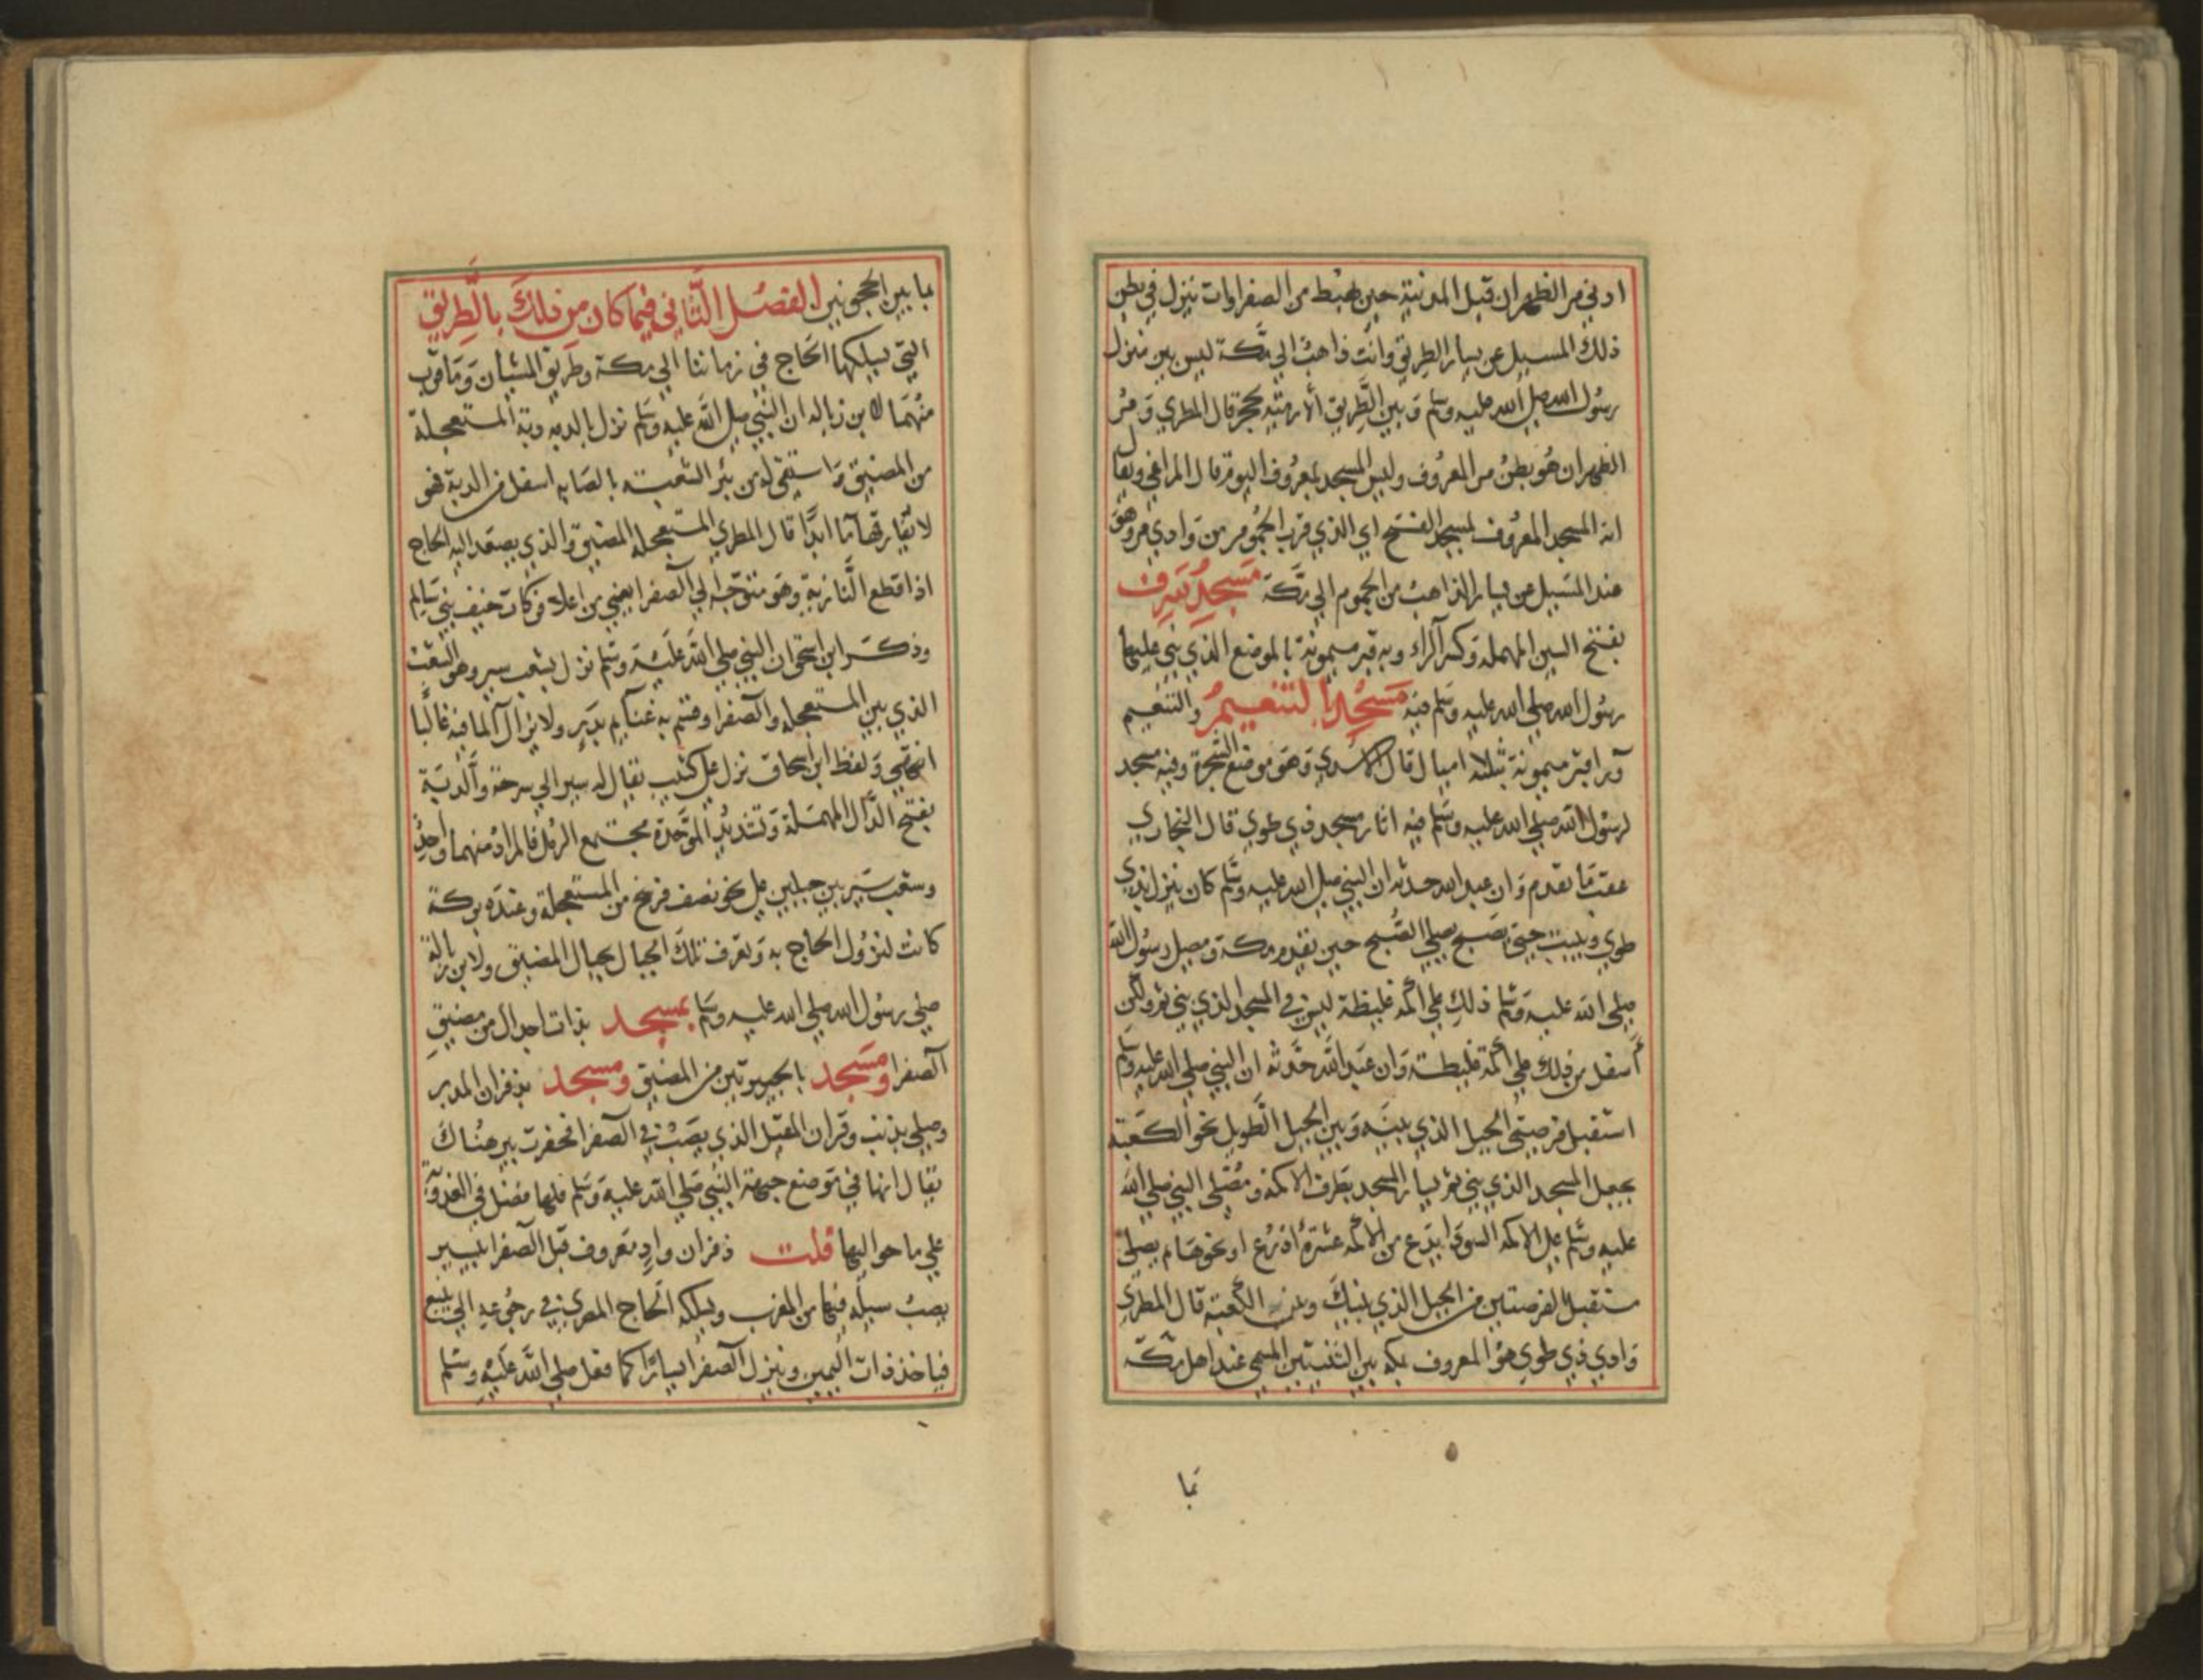 ادني مر الظهران قبل المدنية حين تهبط من الصفراوات ننزل في بطن
ذلك المسيل عن يسار الطريق وانت ذاهب الي مكة ليس بين منزل
رسول الله صلي الله عليه وسلم وبين الطريق الا رميته بحجر قال المطري ومر
الظهران هو بطن مر المعروف وليس المسجد بمعروف اليوم قال المراغي ويقال
انه المسجد المعروف بمسجد الفتح اي الذي قرب الجموم من وادي مر وهو
عند المسيل عن يسار الذاهب من الجموم الي مكة مسجد بسرف
بفتح السين المهملة وكسر الراء وبه قبر ميمونة بالموضع الذي بني عليها
رسول الله صلي الله عليه وسلم فيه مسجد التنعيم والتنعيم
ورا قبر ميمونة بثلثة اميال قال الاسدي وهو موضع الشجرة وفيه مسجد
لرسول الله صلي الله عليه وسلم فيه اثار مسجد ذي طوي قال البخاري
عقب ما تقدم وان عبد الله حدثه ان النبي صلي الله عليه وسلم كان ينزل بذي
طوي ويبيت حتي يصبح يصلي الصبح حين يقدم مكة ومصلي رسول الله
صلي الله عليه وسلم ذلك علي اكمة غليظة ليس في المسجد الذي بني ثم ولكن
أسفل من ذلك علي اكمة غليظة وان عبد الله حدثه ان النبي صلي الله عليه وسلم
استقبل فرضتي الجبل الذي بينه وبين الجبل الطويل نحو الكعبة
بجعل المسجد الذي بني ثم يسار المسجد بطرف الاكمة ومصلي النبي صلي الله
عليه وسلم علي الاكمة السودا يدع من الاكمة عشرة اذرع او نحوها ثم يصلي
مستقبل الفرضتين من الجبل الذي بينك وبين الكعبة قال المطري
وادي ذي طوي هو المعروف بمكة بين الثنيتين المسمي عند اهل مكة
بما
بما بين الحجونين الفصل الثاني فيما كان من ذلك بالطريق
التي يسلكها الحاج في زماننا الي مكة وطريق المشيان وما قرب
منهما لابن زبالة ان النبي صلي الله عليه وسلم نزل بالدبة دبة المستعجلة
من المضيق واستقي له من بئر الشعبة بالصابه اسفل من الدبة فهو
لا يفارقها ما ابدا قال المطري المستعجلة المضيق والذي يصعد اليه الحاج
اذا قطع النازية وهو متوجه الي الصفرا يعني من اعلاه وكات خيف بني سالم
وذكر ابن اسحق ان النبي صلي الله عليه وسلم نزل بشعب سير وهو الشعب
الذي بين المستعجلة والصفرا وقسم به غنايم بدر ولا يزال الما فيه غالبا
انتهي ولفظ ابن اسحاق نزل علي كثيب يقال له سير الي سرحة والدبة
بفتح الدال المهملة وتشديد الموحدة مجتمع الرمل فالمراد منهما واحد
وشعب سير بين جبلين علي نحو نصف فرسخ من المستعجلة وعنده بركة
كانت لنزول الحاج به وتعرف تلك الجبال بجبال المضيق ولابن زبالة
صلي رسول الله صلي الله عليه وسلم بمسجد بذات اجدال من مضيق
الصفرا ومسجد بالجيرتين من المضيق ومسجد بذفران المدبر
وصلي بذنب ذفران المقبل الذي يصب في الصفرا فحفرت بير هناك
يقال انها في موضع جبهة النبي صلي الله عليه وسلم فلها فضل في العذوبة
علي ما حواليها قلت ذفران واد معروف قبل الصفرا بيسير
يصب سيله فيها من المغرب ويسلكه الحاج المصري في رجوعه الي ينبع
فياخذ ذات اليمين وينزل الصفرا يسارا كما فعل صلي الله عليه وسلم